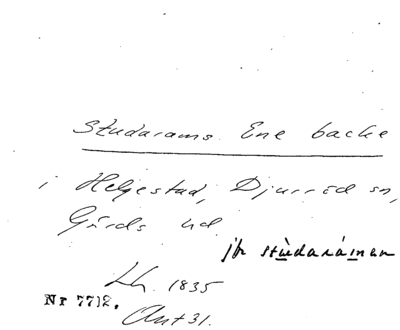 Studarams Ene backe
i Helgestad, Djurröd sn,
Gärds hd
jfr stùdaráman
Lh. 1835
Nr 7712.
Akt 31.